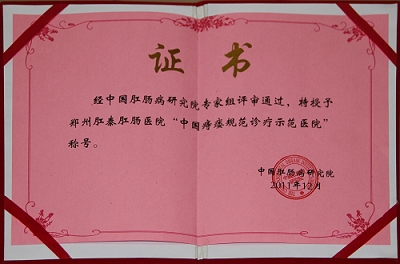 证书
经中国肛肠病研究院专家组评审通过，特授予
郑州肛泰肛肠医院“中国痔瘘规范诊疗示范医院”
称号。
中国肛肠病研究院
2011年12月